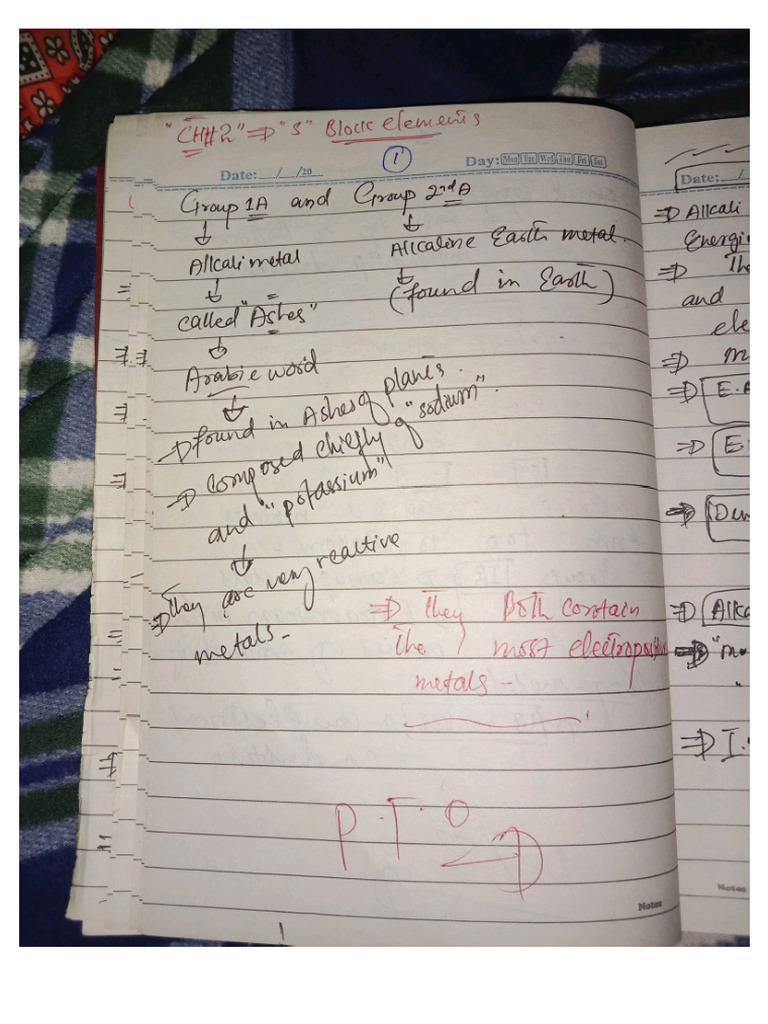 "CH#2" ⇒ "S" Block elements
1
Date: / /20
Day: Mon Tue Wed Thu Fri Sat
Group 1A and Group 2nd A
↓ ↓
Alkali metal Alkaline Earth metal.
↓ ↓
called "Ashes" (found in Earth)
↓
Arabic word
↓
⇒ found in Ashes of plants.
⇒ Composed chiefly of "sodium".
and "potassium"
↓
⇒ They are very reactive
metals-
⇒ They Both contain
The most electropositive
metals-
P.T.O
⇒
Notes
Date: /
⇒ Alkali
Energi
⇒ Th
and
ele
⇒ m
⇒ E.A
⇒ E.
⇒
⇒ Alka
⇒
⇒ I.
Notes